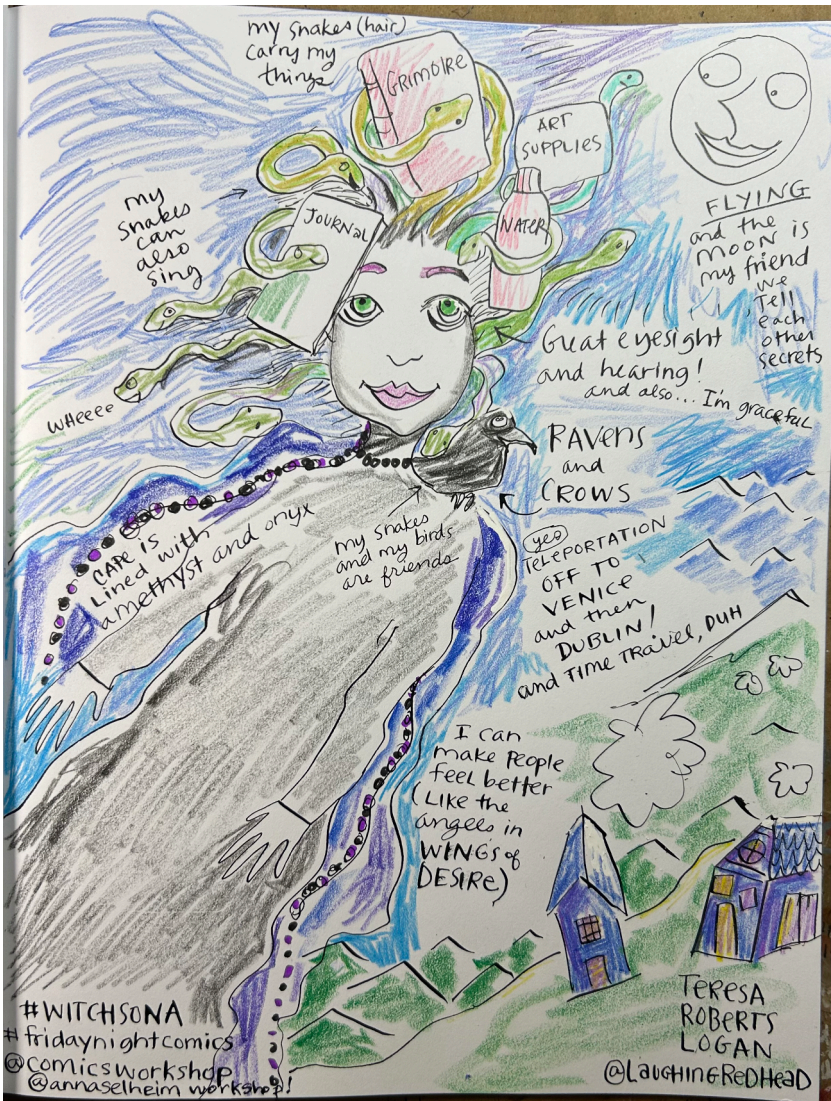 my snakes (hair)
carry my
things
GRIMOIRE
ART
SUPPLIES
my
snakes
can
also
sing
JOURNAL
WATER
FLYING
and the
MOON is
my friend
we
Tell
each
other
secrets
Great eyesight
and hearing!
and also... I'm graceful
WHeeee
RAVENS
and
CROWS
CAPE is
Lined with
amethyst and onyx
my snakes
and my birds
are friends
yes
TELEPORTATION
OFF TO
VENICE
and then
DUBLIN!
and TIME TRAVEL, DUH
I can
make People
feel better
(Like the
angels in
WINGS of
DESIRE)
#WITCHSONA
#fridaynightcomics
@comicsworkshop
@annaselheim workshop!
TERESA
ROBERTS
LOGAN
@LAUGHINGREDHEAD